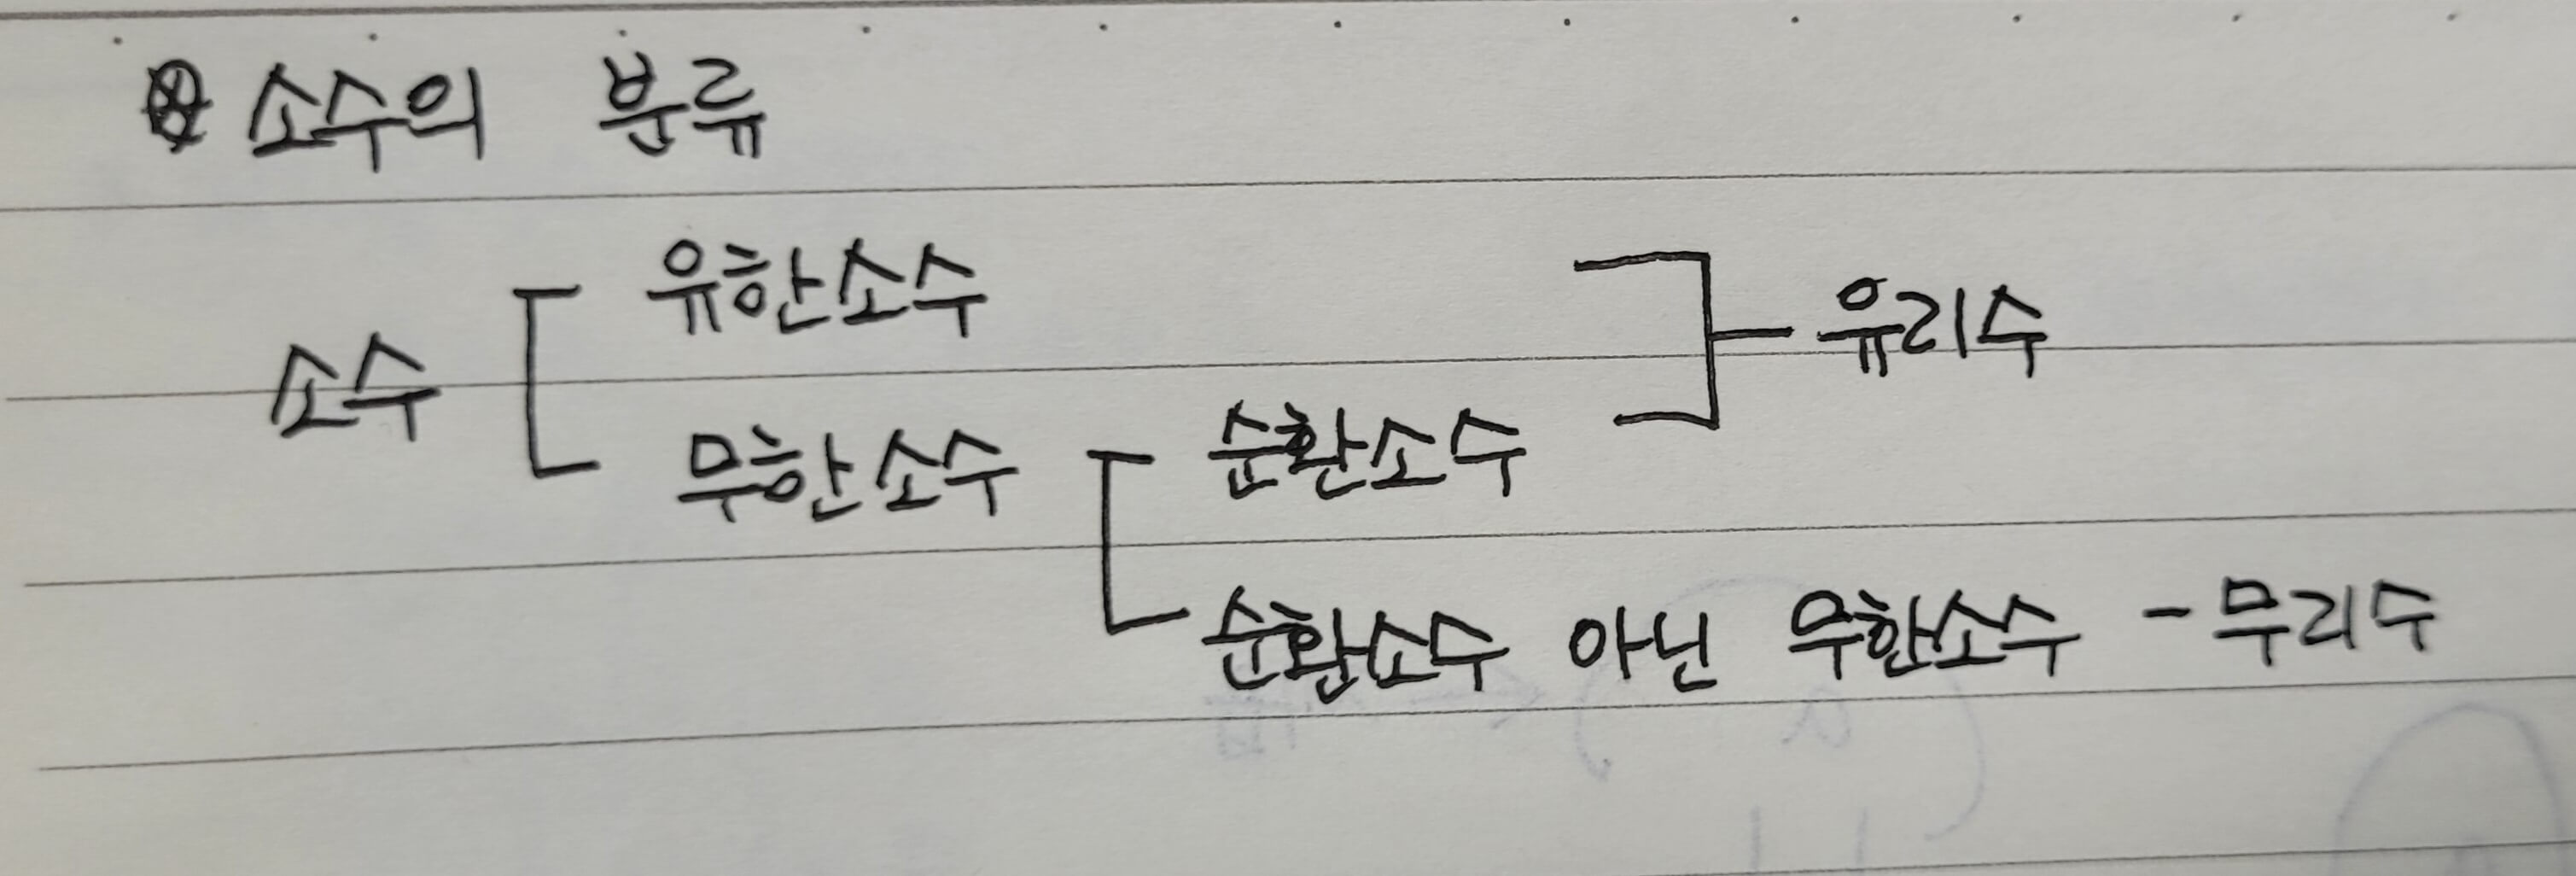 소수의 분류
유한소수
소수
유리수
무한소수
순환소수
순환소수 아닌 무한소수 - 무리수